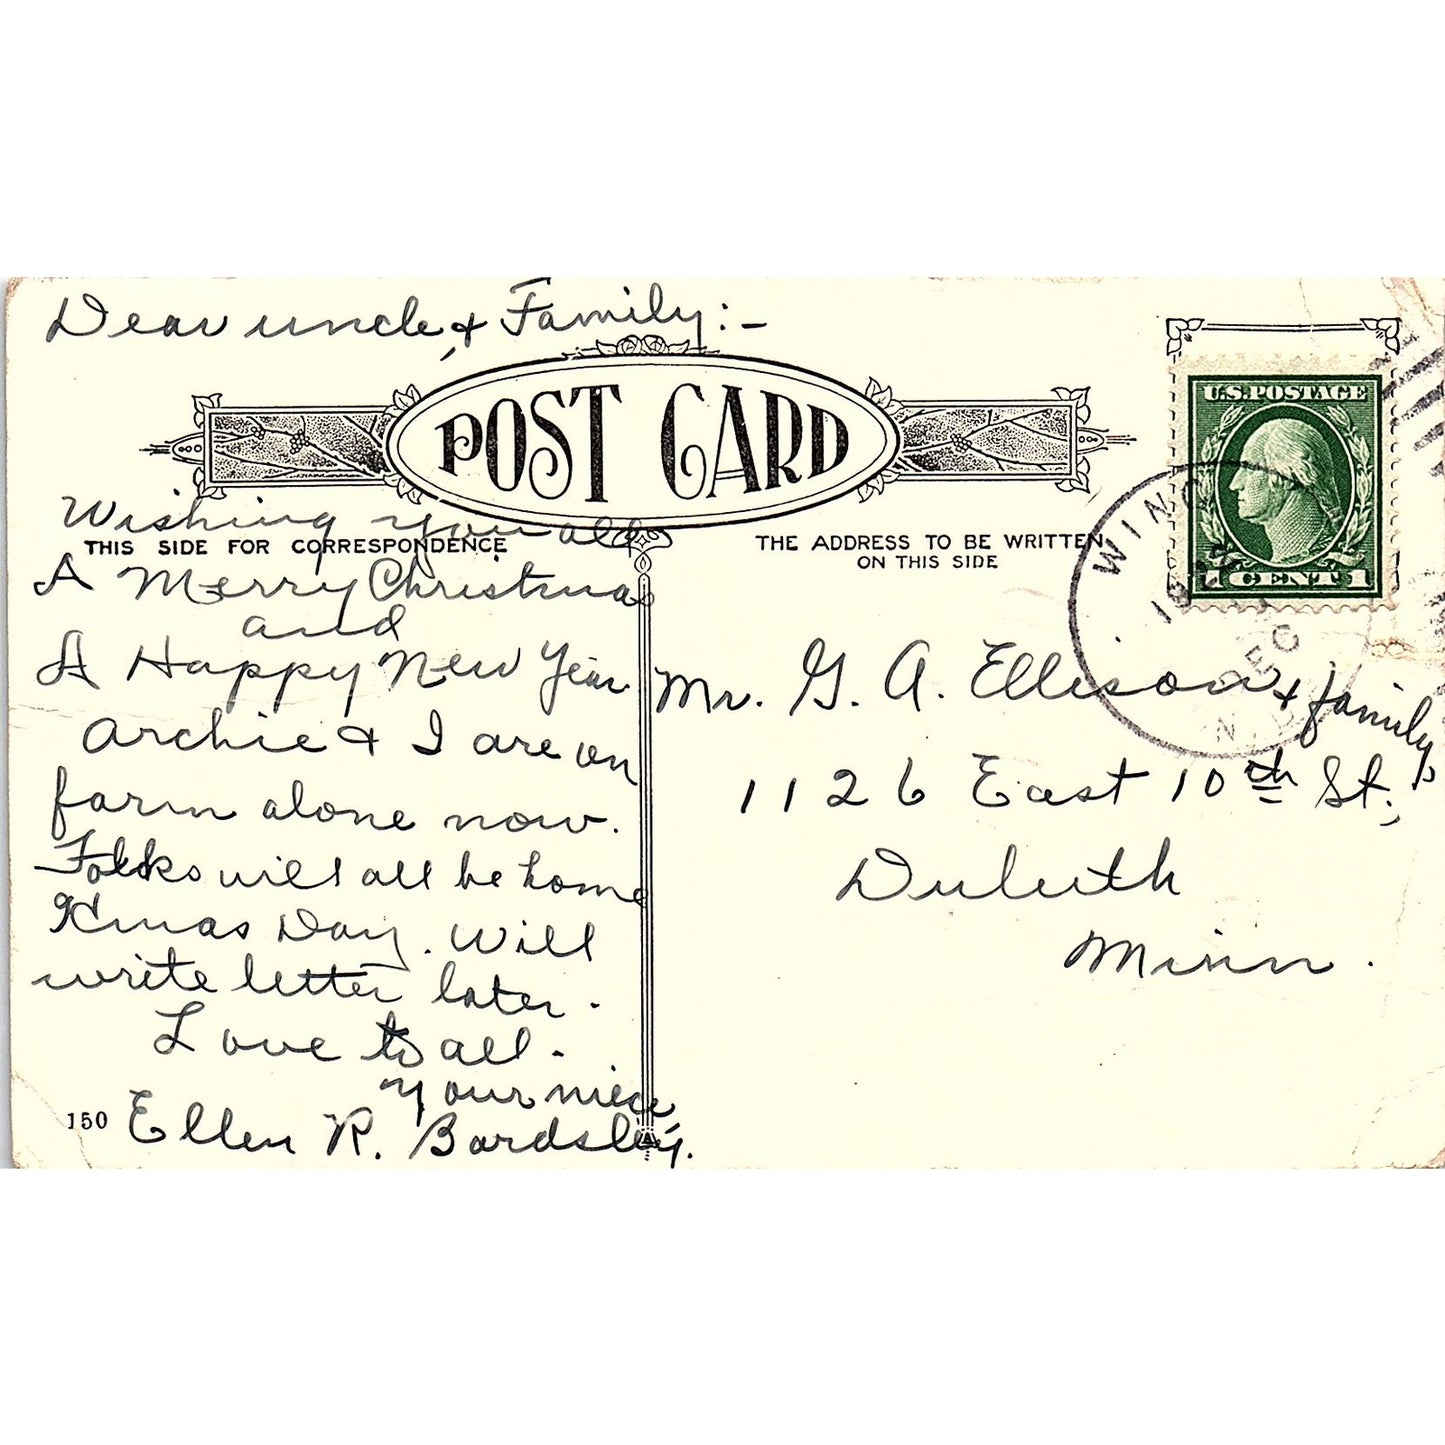 Dear uncle, & Family:-
POST CARD
Wishing you all
THIS SIDE FOR CORRESPONDENCE
A Merry Christmas
and
A Happy New Year
Archie & I are on
farm alone now.
Folks will all be home
Xmas Day. Will
write letter later.
Love to all.
Your niece,
150
Ellen R. Bardsley.
THE ADDRESS TO BE WRITTEN
ON THIS SIDE
U.S. POSTAGE
1 CENT 1
DEC
Mr. G. A. Ellison & family,
1126 East 10th St.,
Duluth
Minn.